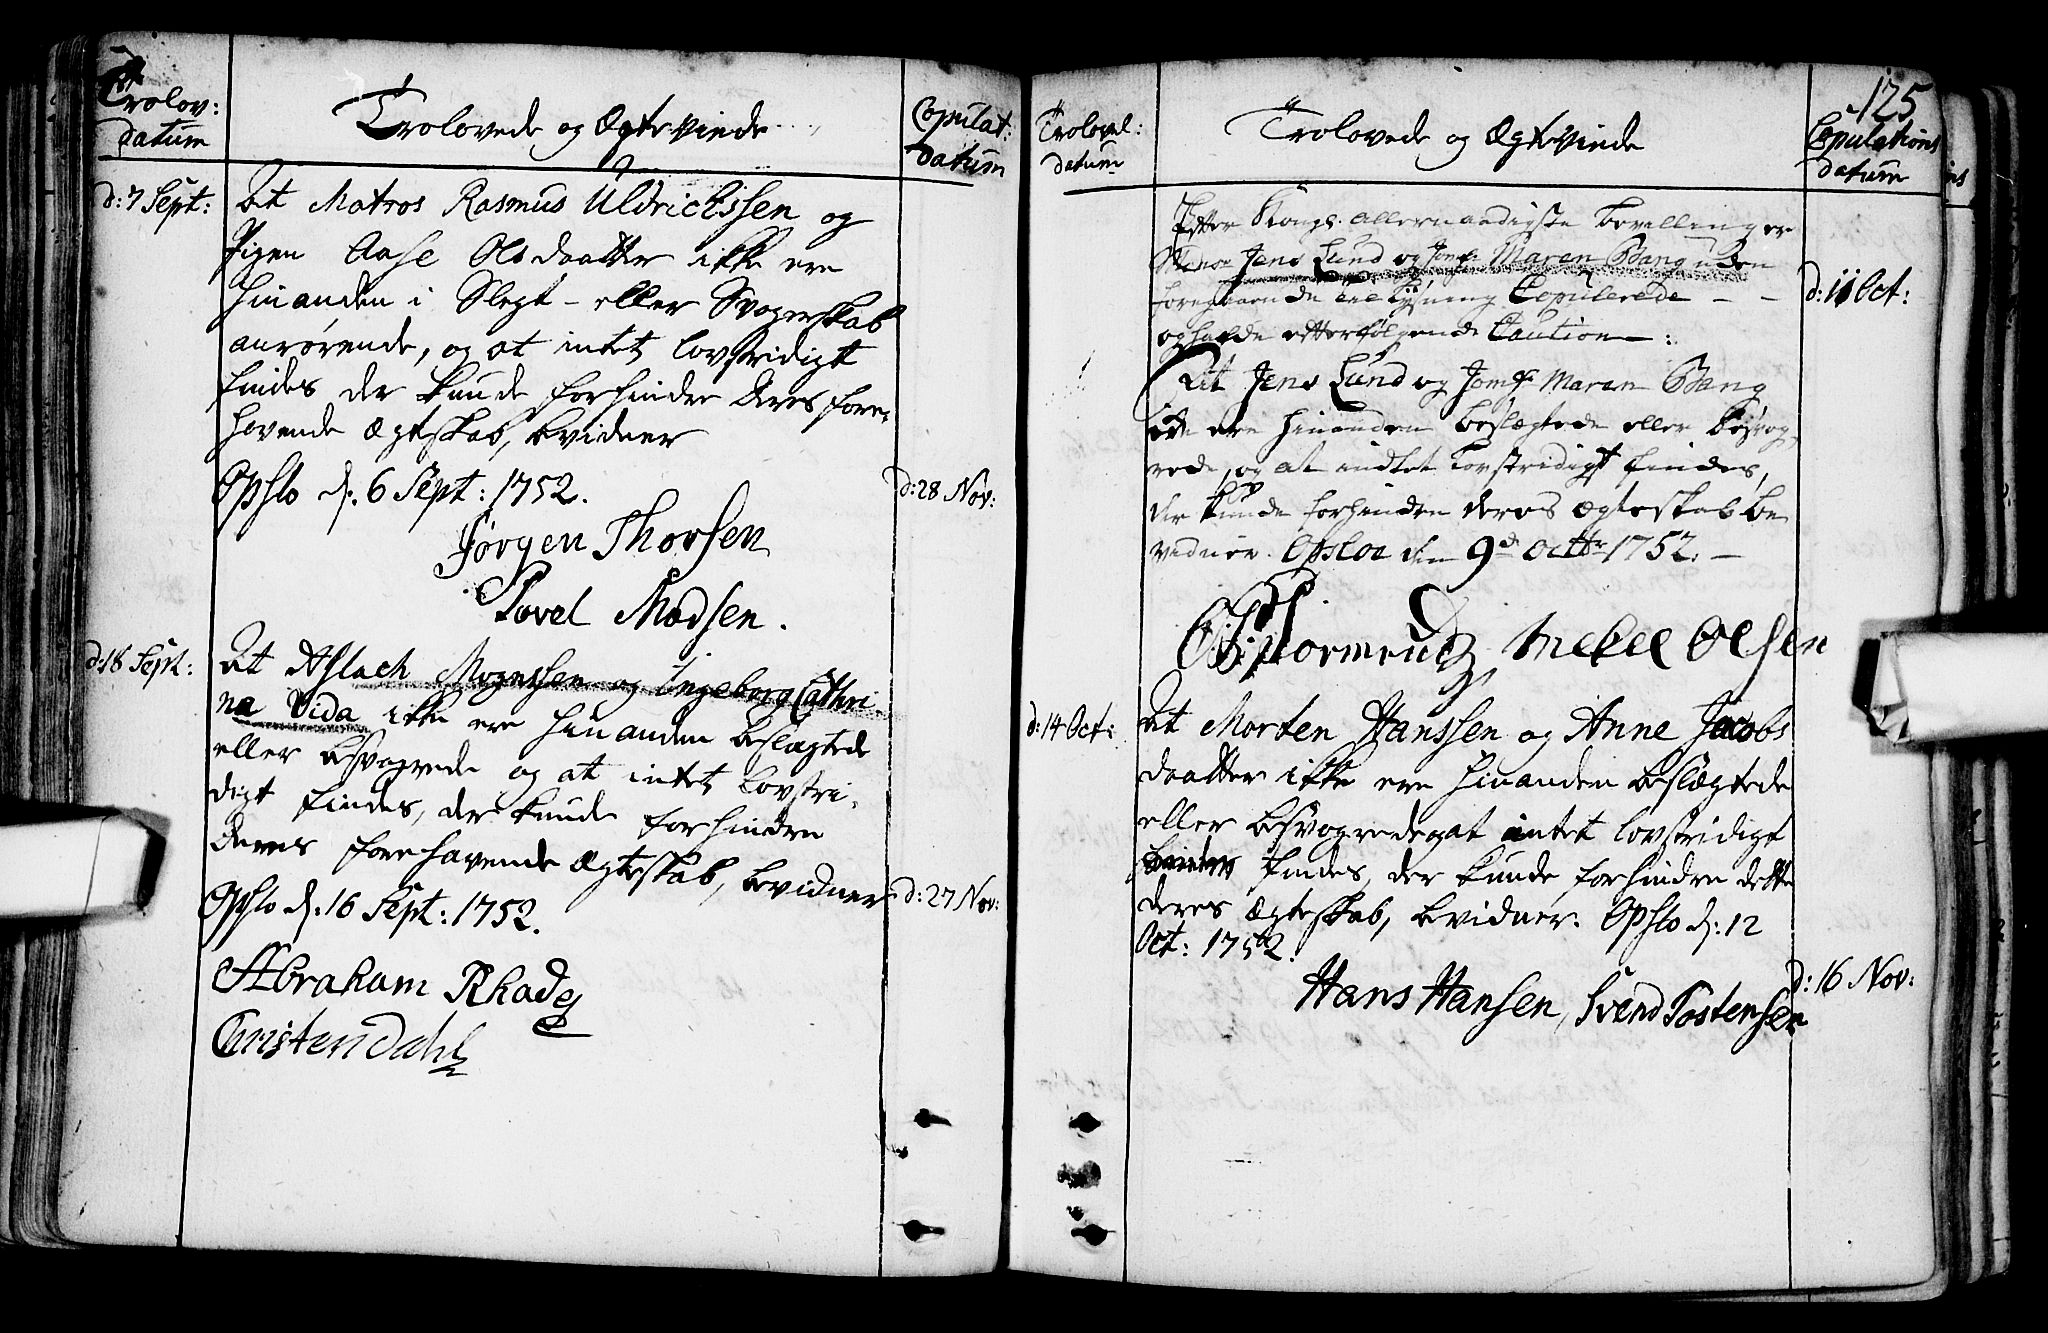 Trolov:
datum
Trolovede og Ægte Viede
Copulat:
datum
d: 7 Sept:
At Matros Rasmus Uldrichssen og
Pigen Aase Olsdaatter ikke ere
hinanden i Slegt- eller Svogerskab
anrørende, og at intet lovstridigt
findes der kunde forhindre deres fore-
havende Ægteskab, bevidner
Opslo d: 6 Sept: 1752.
d: 28 Nov:
Jørgen Thorsen
Povel Madsen.
d: 18 Sept:
At Aslach Mogenssen og Ingeborg Cathri
na Vida ikke ere hinanden beslægtede
eller besvogrede og at intet lovstri-
digt findes, der kunde forhindre
deres forehavende Ægteskab, bevidner
d: 27 Nov:
Opslo d: 16 Sept: 1752.
Abraham Rhade
Christen Dahl
125
Trolovel:
datum
Trolovede og Ægte Viede
Copulations
datum
Efter Kongl. allernaadigste bevilling er
Jens Lund og Jomf: Maren Bang uden
foregaaende Tillysning Copulerede - -
d: 11 Oct:
og hafde efterfølgende Caution:
At Jens Lund og Jomf: Maren Bang
ikke ere hinanden beslægtede eller besvog
rede, og at indtet Lovstridigt findes,
der kunde forhindre deres Ægteskab be
vidner. Opsloe den 9d Octbr 1752. -
Stormentz Mekel Olsen
d: 14 Oct:
At Morten Hanssen og Anne Jacobs
daatter ikke ere hinanden beslægtede
eller besvogrede, at intet lovstridigt
findes, der kunde forhindre dette
deres Ægteskab, bevidner. Opslo d: 12
Oct: 1752.
d: 16 Nov:
Hans Hansen, Svend Tostensen